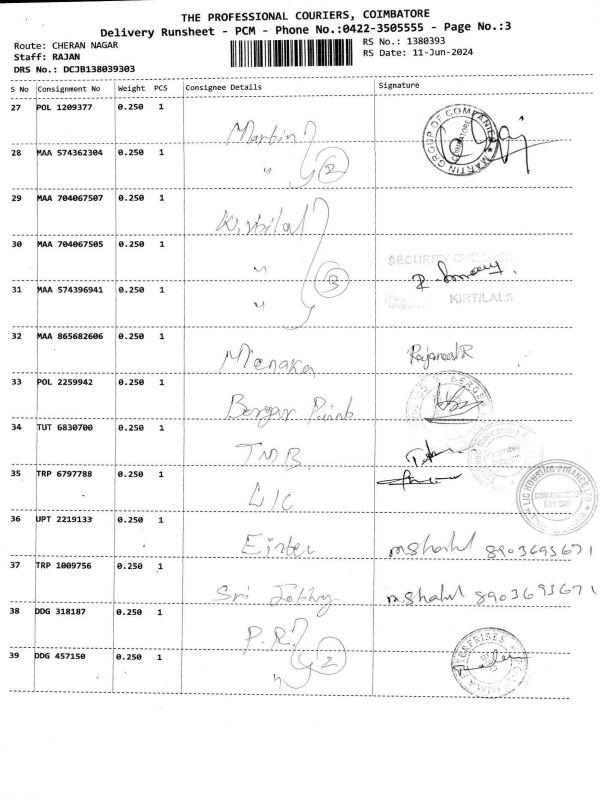 THE PROFESSIONAL COURIERS, COIMBATORE
Delivery Runsheet - PCM - Phone No.:0422-3505555 - Page No.:3
Route: CHERAN NAGAR
RS No.: 1380393
Staff: RAJAN
RS Date: 11-Jun-2024
DRS No.: DCJB138039303
S No Consignment No Weight PCS Consignee Details Signature
27 POL 1209377 0.250 1
Martin
MARTIN GROUP OF COMPANIES
COIMBATORE
28 MAA 574362304 0.250 1
" 2
29 MAA 704067507 0.250 1
Kirtilal
30 MAA 704067505 0.250 1
" 3
SECURITY
31 MAA 574396941 0.250 1
"
KIRTILALS
32 MAA 865682606 0.250 1
Menaka
33 POL 2259942 0.250 1
Berger Paints
34 TUT 6830700 0.250 1
TMB
35 TRP 6797788 0.250 1
LIC
LIC HOUSING FINANCE LTD
36 UPT 2219133 0.250 1
mshahul 8903693671
37 TRP 1009756 0.250 1
Sri
mshahul 8903693671
38 DDG 318187 0.250 1
P.R
39 DDG 457150 0.250 1
" 2